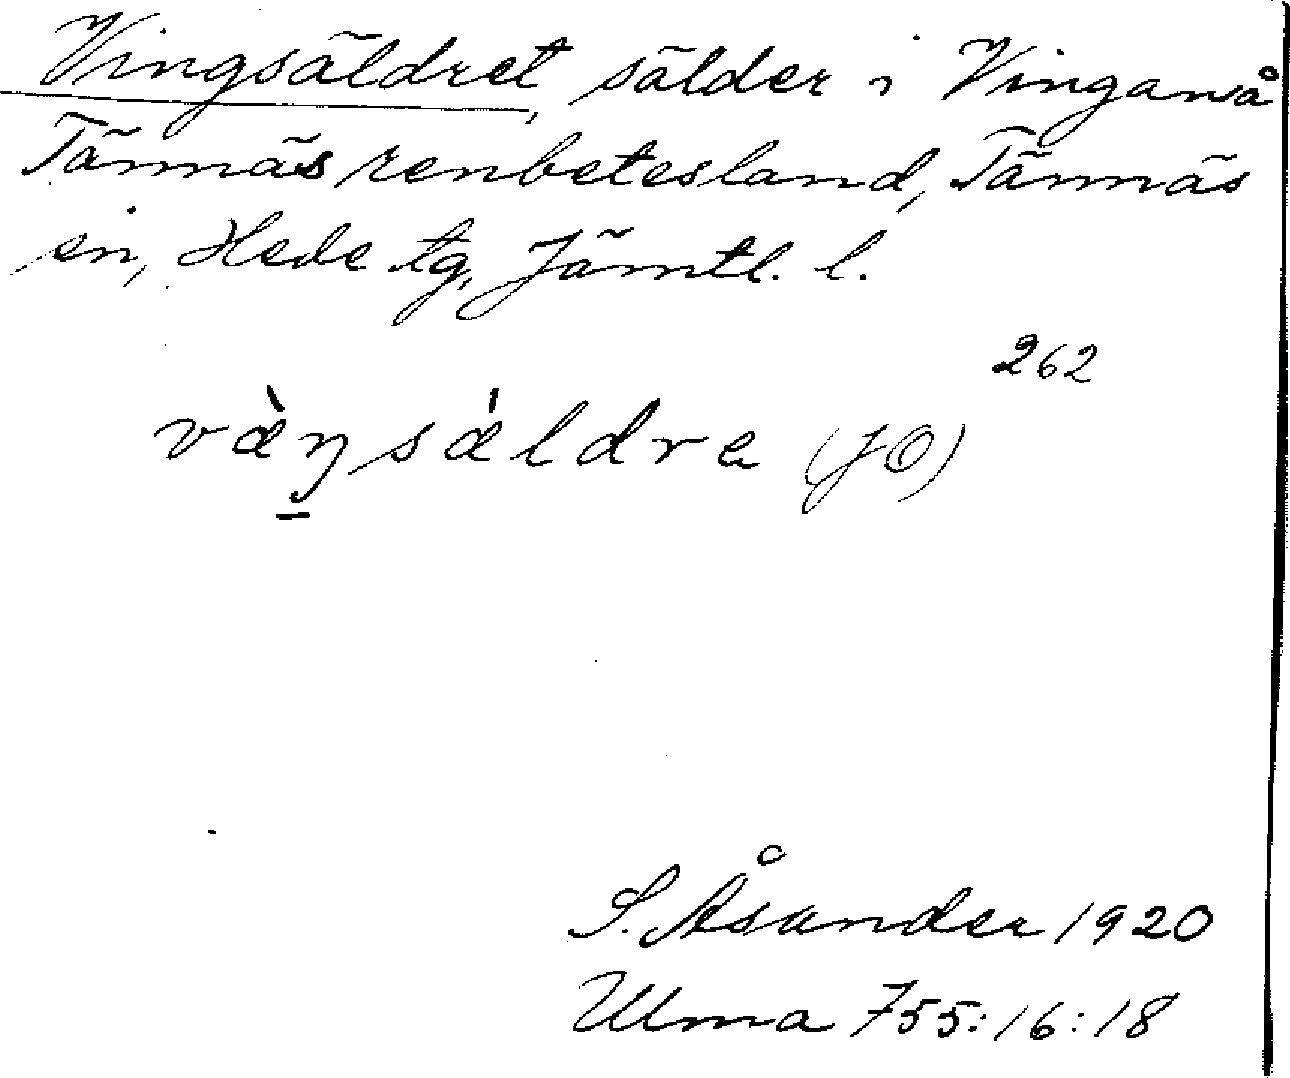 Vingsäldret, sälder i Vingarna å
Tännäs renbetesland, Tännäs
sn, Hede tg, Jämtl. l.
262
væ̀ŋsǽldra (JO)
S. Åsander 1920
Ulma 755:16:18